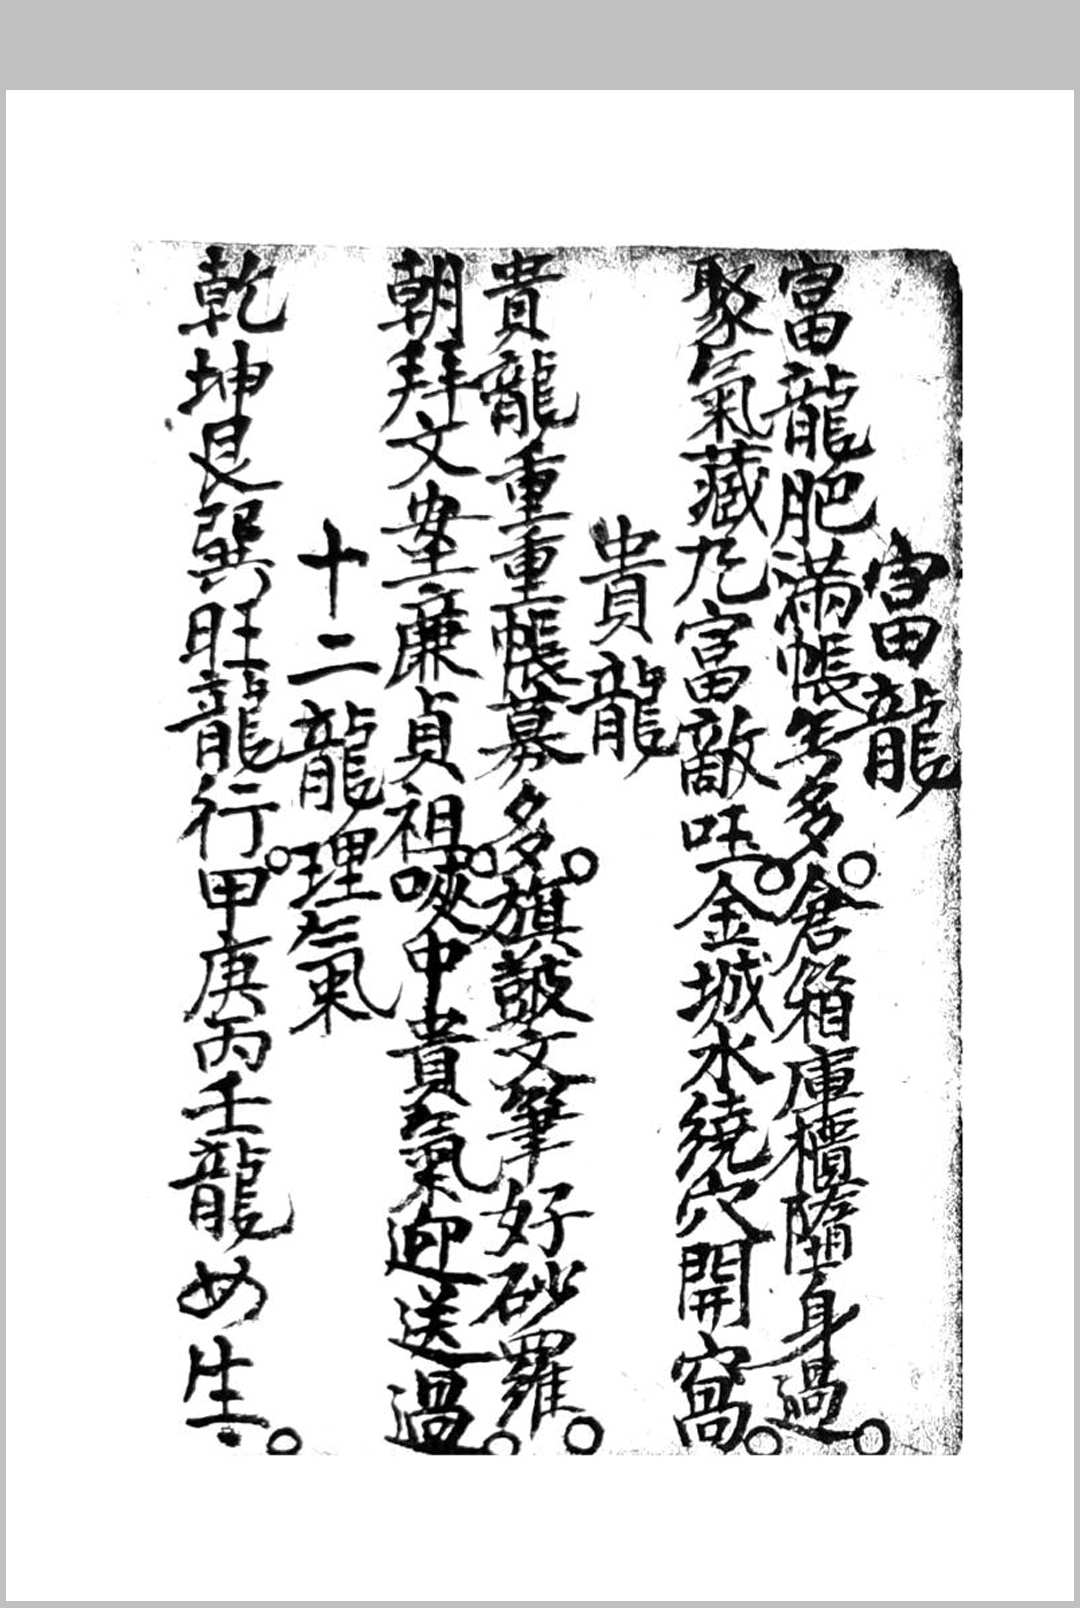 富龍
富龍肥滿帳無多。倉箱庫櫃隨身過。
聚氣藏風富敵旺。金城水繞穴開窩。
貴龍
貴龍重重帳幕多。旗皷文筆好砂羅。
朝拜文峯廉貞祖。中貴氣迎送過。
十二龍理氣
乾坤艮巽旺龍行。甲庚丙壬龍生。